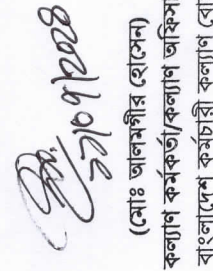 ১১/০৭/২০২৪
(মোঃ আলমগীর হোসেন)
কল্যাণ কর্মকর্তা/কল্যাণ অফিসা
বাংলাদেশ কর্মচারী কল্যাণ বো